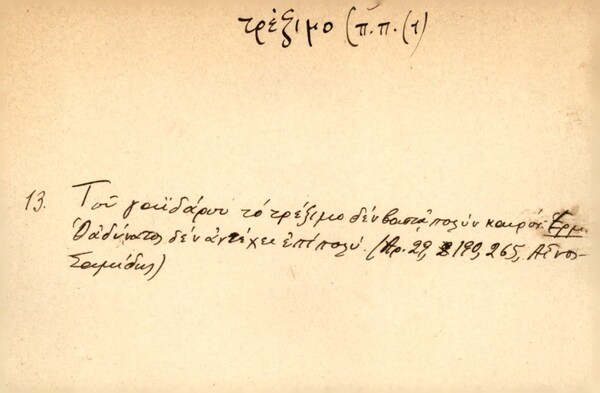 τρέξιμο (π.π. (1)
13. Τοῦ γαϊδάρου τὸ τρέξιμο δέν βαστᾷ πολύν καιρόν. Ἑρμ.
Ὁ ἀδύνατος δέν ἀντέχει ἐπί πολύ. (Αρ. 29, 199, 265, Αἶνος-
Σαμίδης)